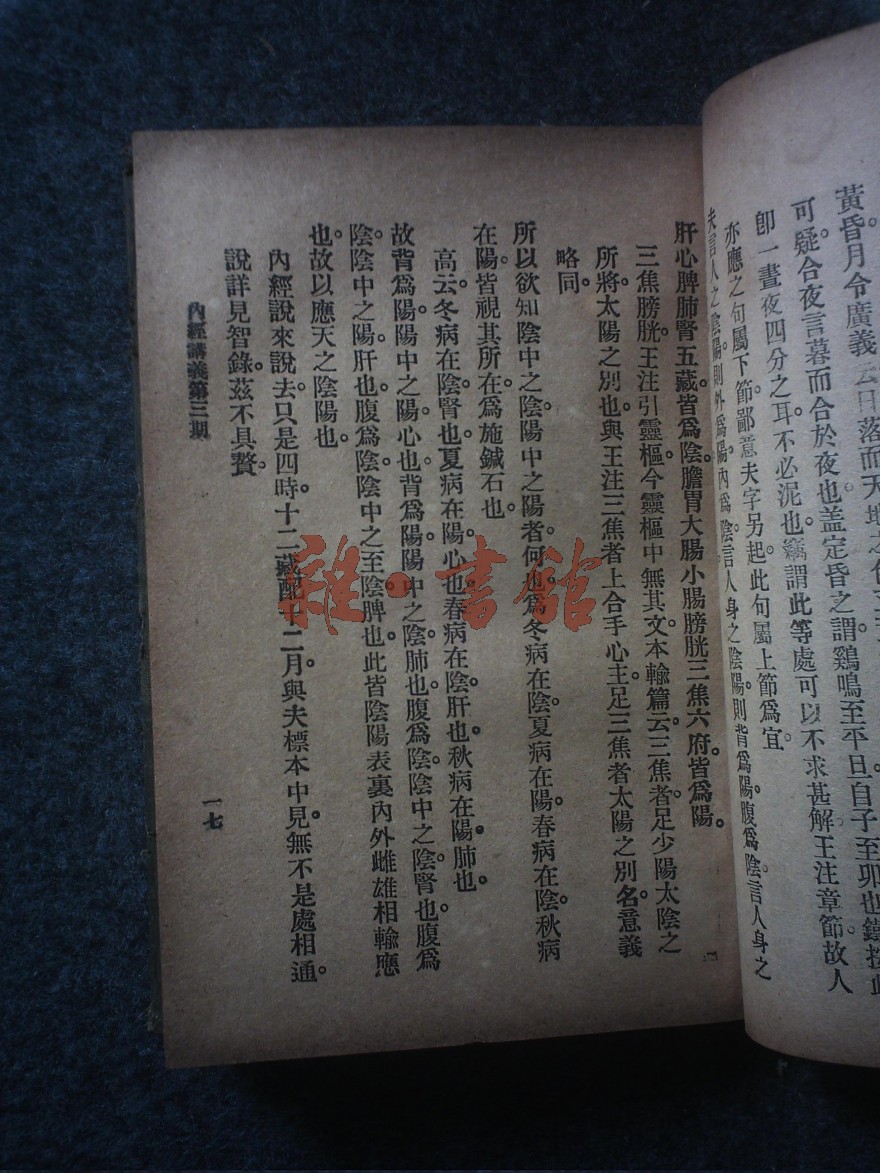 黃昏月令廣義云日落而天地之
可疑。合夜言暮而合於夜也。盖定昏之謂。鷄鳴至平旦自子至卯也。鐵按此
卽一晝夜四分之耳。不必泥也。竊謂此等處可以不求甚解。王注章節。故人
亦應之句屬下節。鄙意夫字另起。此句屬上節爲宜。
夫言人之陰陽。則外爲陽。內爲陰。言人身之陰陽。則背爲陽。腹爲陰。言人身之
肝心脾肺腎五藏皆爲陰。膽胃大腸小腸膀胱三焦六府皆爲陽。
三焦膀胱。王注引靈樞。今靈樞中無其文。本輸篇云。三焦者。足少陽太陰之
所將。太陽之別也。與王注三焦者上合手心主。足三焦者太陽之別名。意義
略同。
所以欲知陰中之陰。陽中之陽者何也。爲冬病在陰。夏病在陽。春病在陰。秋病
在陽。皆視其所在。爲施鍼石也。
高云。冬病在陰。腎也。夏病在陽。心也。春病在陰。肝也。秋病在陽。肺也。
故背爲陽。陽中之陽。心也。背爲陽。陽中之陰。肺也。腹爲陰。陰中之陰。腎也。腹爲
陰。陰中之陽。肝也。腹爲陰。陰中之至陰。脾也。此皆陰陽表裏內外雌雄相輸應
也。故以應天之陰陽也。
內經說來說去。只是四時十二藏配十二月。與夫標本中見。無不是處相通。
說詳見智錄。茲不具贅。
內經講義第三期
一七
雜·書館